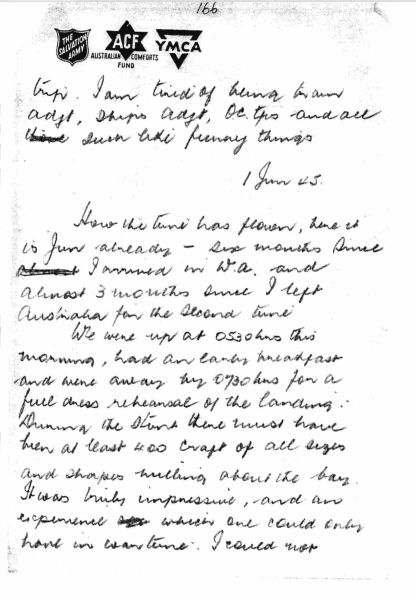 166
THE SALVATION ARMY
ACF
AUSTRALIAN COMFORTS FUND
YMCA
trip. I am tired of being train
adjt, ships adjt, O.C. tps and all
such like funny things
1 Jun 45.
How the time has flown, here it
is Jun already – six months since
I arrived in W.A. and
almost 3 months since I left
Australia for the second time
We were up at 0530 hrs this
morning, had an early breakfast
and were away by 0730 hrs for a
full dress rehearsal of the landing.
During the Stunt there must have
been at least 400 craft of all sizes
and shapes milling about the bay.
It was truly impressive, and an
experience which one could only
have in wartime. I could not